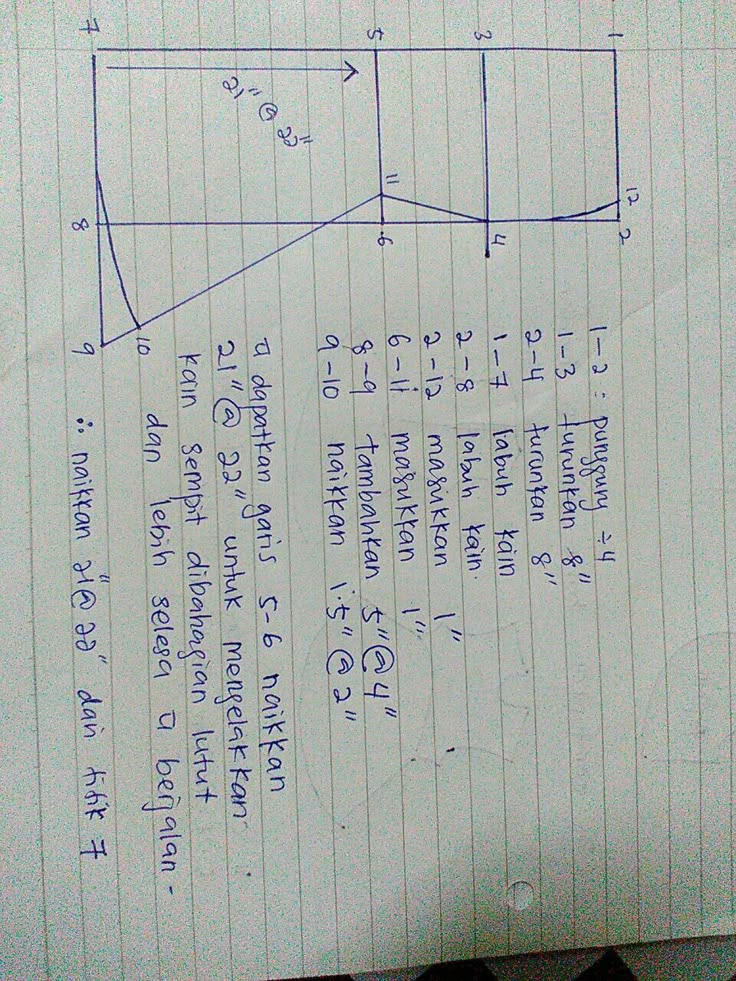 1
3
5
7
21" @ 22"
12
2
4
11
6
8
10
9
1-2 : punggung ÷4
1-3 turunkan 8"
2-4 turunkan 8"
1-7 labuh kain
2-8 labuh kain.
2-12 masukkan 1"
6-11 masukkan 1"
8-9 tambahkan 5" @ 4"
9-10 naikkan 1.5" @ 2"
dapatkan garis 5-6 naikkan
21" @ 22" untuk mengelakkan
kain sempit dibahagian lutut
dan lebih selesa berjalan-
∴ naikkan 21" @ 22" dari titik 7